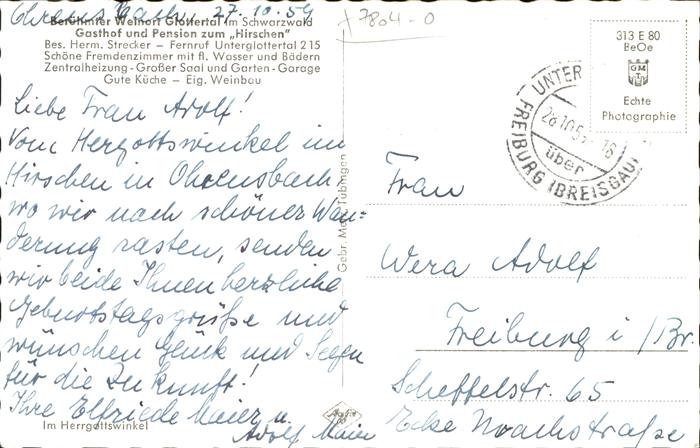 Ohrensbach, 27.10.54
+7804-0
Berühmter Weinort Glottertal im Schwarzwald
Gasthof und Pension zum „Hirschen"
Bes. Herm. Strecker - Fernruf Unterglottertal 215
Schöne Fremdenzimmer mit fl. Wasser und Bädern
Zentralheizung - Großer Saal und Garten - Garage
Gute Küche - Eig. Weinbau
313 E 80
BeOe
GM
TU
Echte
Photographie
UNTER
28.10.5
16
über
FREIBURG (BREISGAU)
Liebe Frau Adolf!
Vom Hergottswinkel im
Hirschen in Ohrensbach,
wo wir nach schöner Wan=
derung rasten, senden
wir beide Ihnen herzliche
Geburtstagsgrüße und
wünschen Glück und Segen
für die Zukunft!
Ihre Elfriede Maier u.
Adolf Maier
Im Herrgottswinkel
Gebr. Metz, Tübingen
Agfa
Frau
Wera Adolf
Freiburg i/Br.
Scheffelstr. 65
Ecke